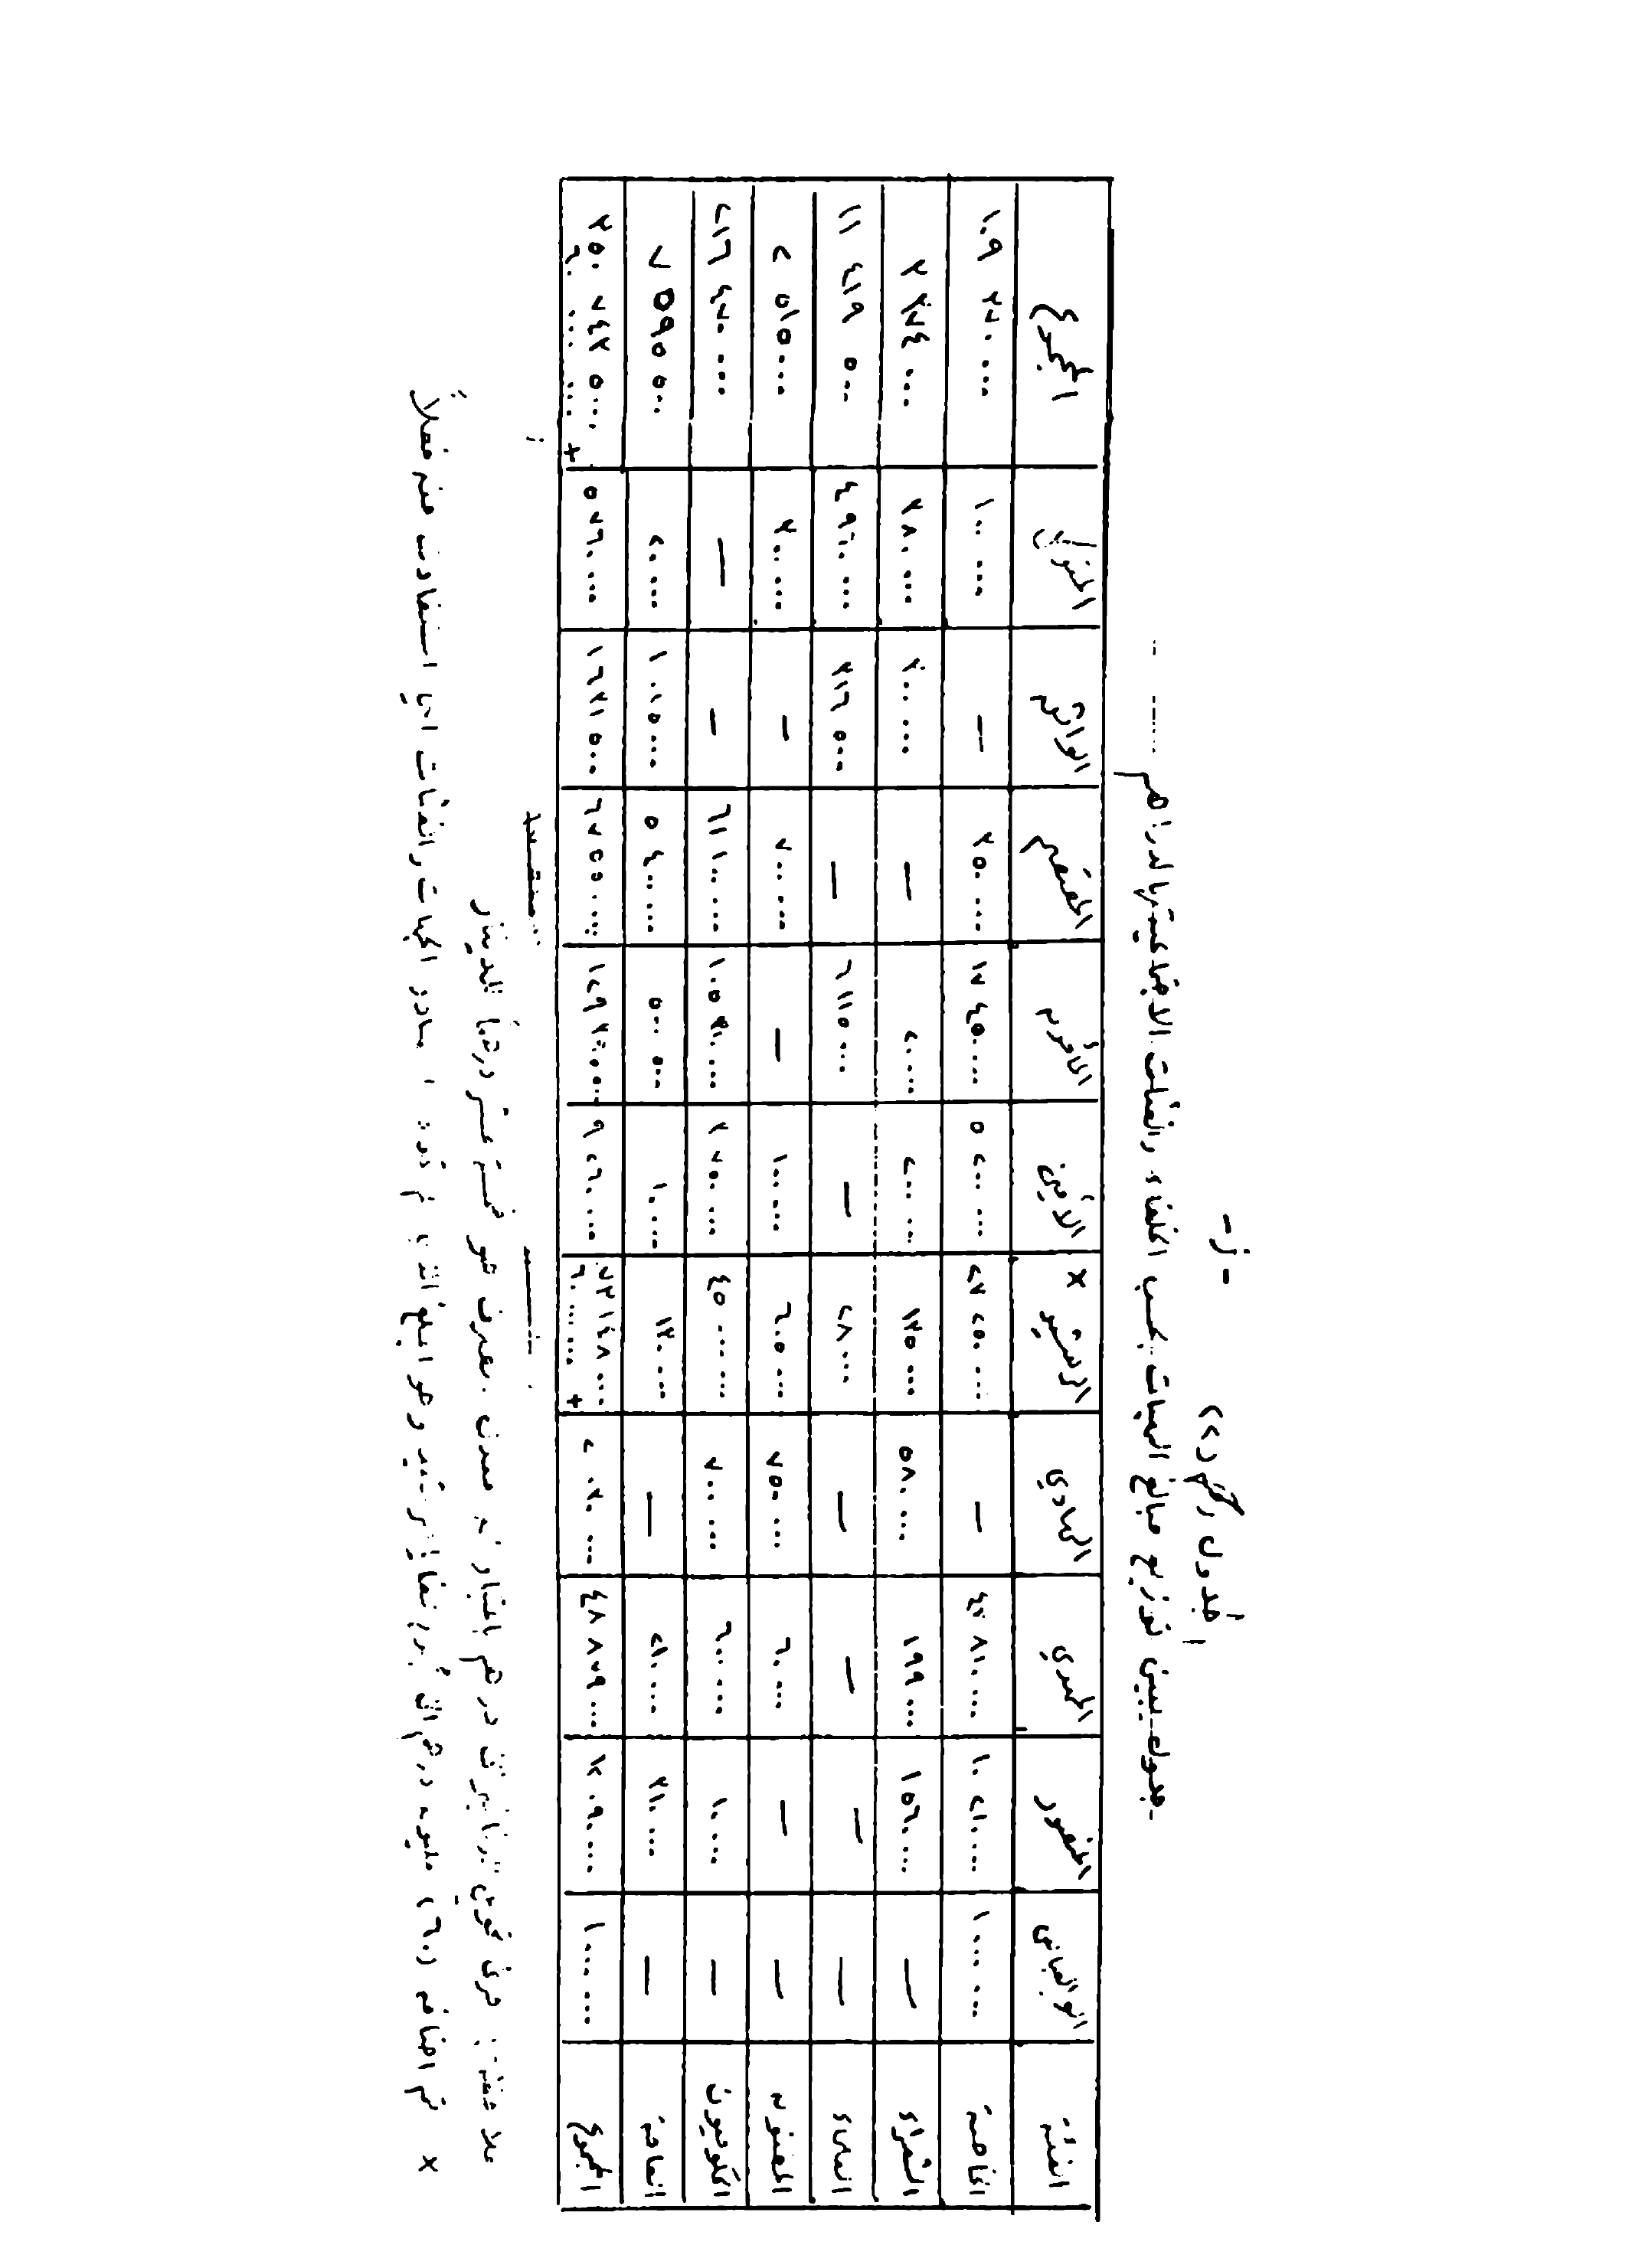 - ز -
جدول رقم (٢)
جدول يبين توزيع مبالغ الهبات بحسب الخلفاء والفئات الاجتماعية بالدراهم
الفئة | أبو العباس | المنصور | المهدي | الهادي | الرشيد x | الأمين | المأمون | المعتصم | الواثق | المتوكل | المجموع
الخاصة | ١٠٠٠٠٠٠ | ١٠ ٢١٠٠٠٠ | ٤٧ ٨١٠٠٠٠ | — | ٢٧ ٢٥٠٠٠٠ | ٥ ٢٠٠٠٠٠ | ١٧ ٤٥٠٠٠٠ | ٣٥٠٠٠٠ | — | ١٠٠٠٠٠ | ١٠٩ ٣٧٠٠٠٠
الشعراء | — | ١ ٥٦٠٠٠٠ | ١٩٩٠٠٠ | ٥٨٠٠٠٠ | ١٣٥٠٠٠ | ٢٠٠٠٠٠ | ٢٠٠٠٠ | — | ٣٠٠٠٠٠ | ٣٨٠٠٠٠ | ٣ ٣٧٤٠٠٠
الندماء | — | — | — | — | ٢٨٠٠٠ | — | ٦ ١١٥٠٠٠ | — | ٣١٦ ٥٠٠ | ٤ ٩٦٠٠٠٠ | ١١ ٤١٩ ٥٠٠
المغنون | — | — | ٦٠٠٠٠ | ٧٥٠٠٠٠ | ٦٠٥٠٠٠ | ١٠٠٠٠٠ | — | ٧٠٠٠٠٠ | — | ٣٠٠٠٠٠ | ٢ ٥١٥٠٠٠
العلويون | — | ١٠٠٠٠ | ٦٠٠٠٠٠ | ٧٠٠٠٠٠ | ٤٥ ٠٠٠٠٠٠ | ٣ ٧٥٠٠٠٠ | ١٠٥ ٣٠٠٠٠٠ | ٦١ ١٠٠٠٠٠ | — | — | ٢١٦ ٤٧٠٠٠٠
العامة | — | ٣١٠٠٠٠ | ٢١٠٠٠٠ | — | ١٣٠٠٠٠ | ١٠٠٠٠ | ٥٠٠ ٥٠٠ | ٥ ٤٠٠٠٠٠ | ١ ٠١٥٠٠٠ | ٢٠٠٠٠ | ٧ ٥٩٥ ٥٠٠
المجموع | ١٠٠٠٠٠٠ | ١٢ ٠٩٠٠٠٠ | ٤٨ ٨٧٩٠٠٠ | ٢ ٠٣٠٠٠٠ | ٧٣ ١٤٨٠٠٠ + ٦٠ ٠٠٠٠٠٠ | ٩ ٢٦٠٠٠٠ | | ٦٧ ٥٥٠٠٠٠ | ١ ٦٣١ ٥٠٠ | ٥ ٧٦٠٠٠٠ | + ٦٠ ٠٠٠٠٠٠
ملاحظة: جرى تحويل الدنانير الى دراهم باعتبار أن معدل الصرف هو خمسة عشر درهماً للدينار
x تم اضافة (٦٠) مليون درهم الى الرشيد وهو المبلغ الذي لم تورد المصادر الجهات والفئات التي استفادت منه فعلاً